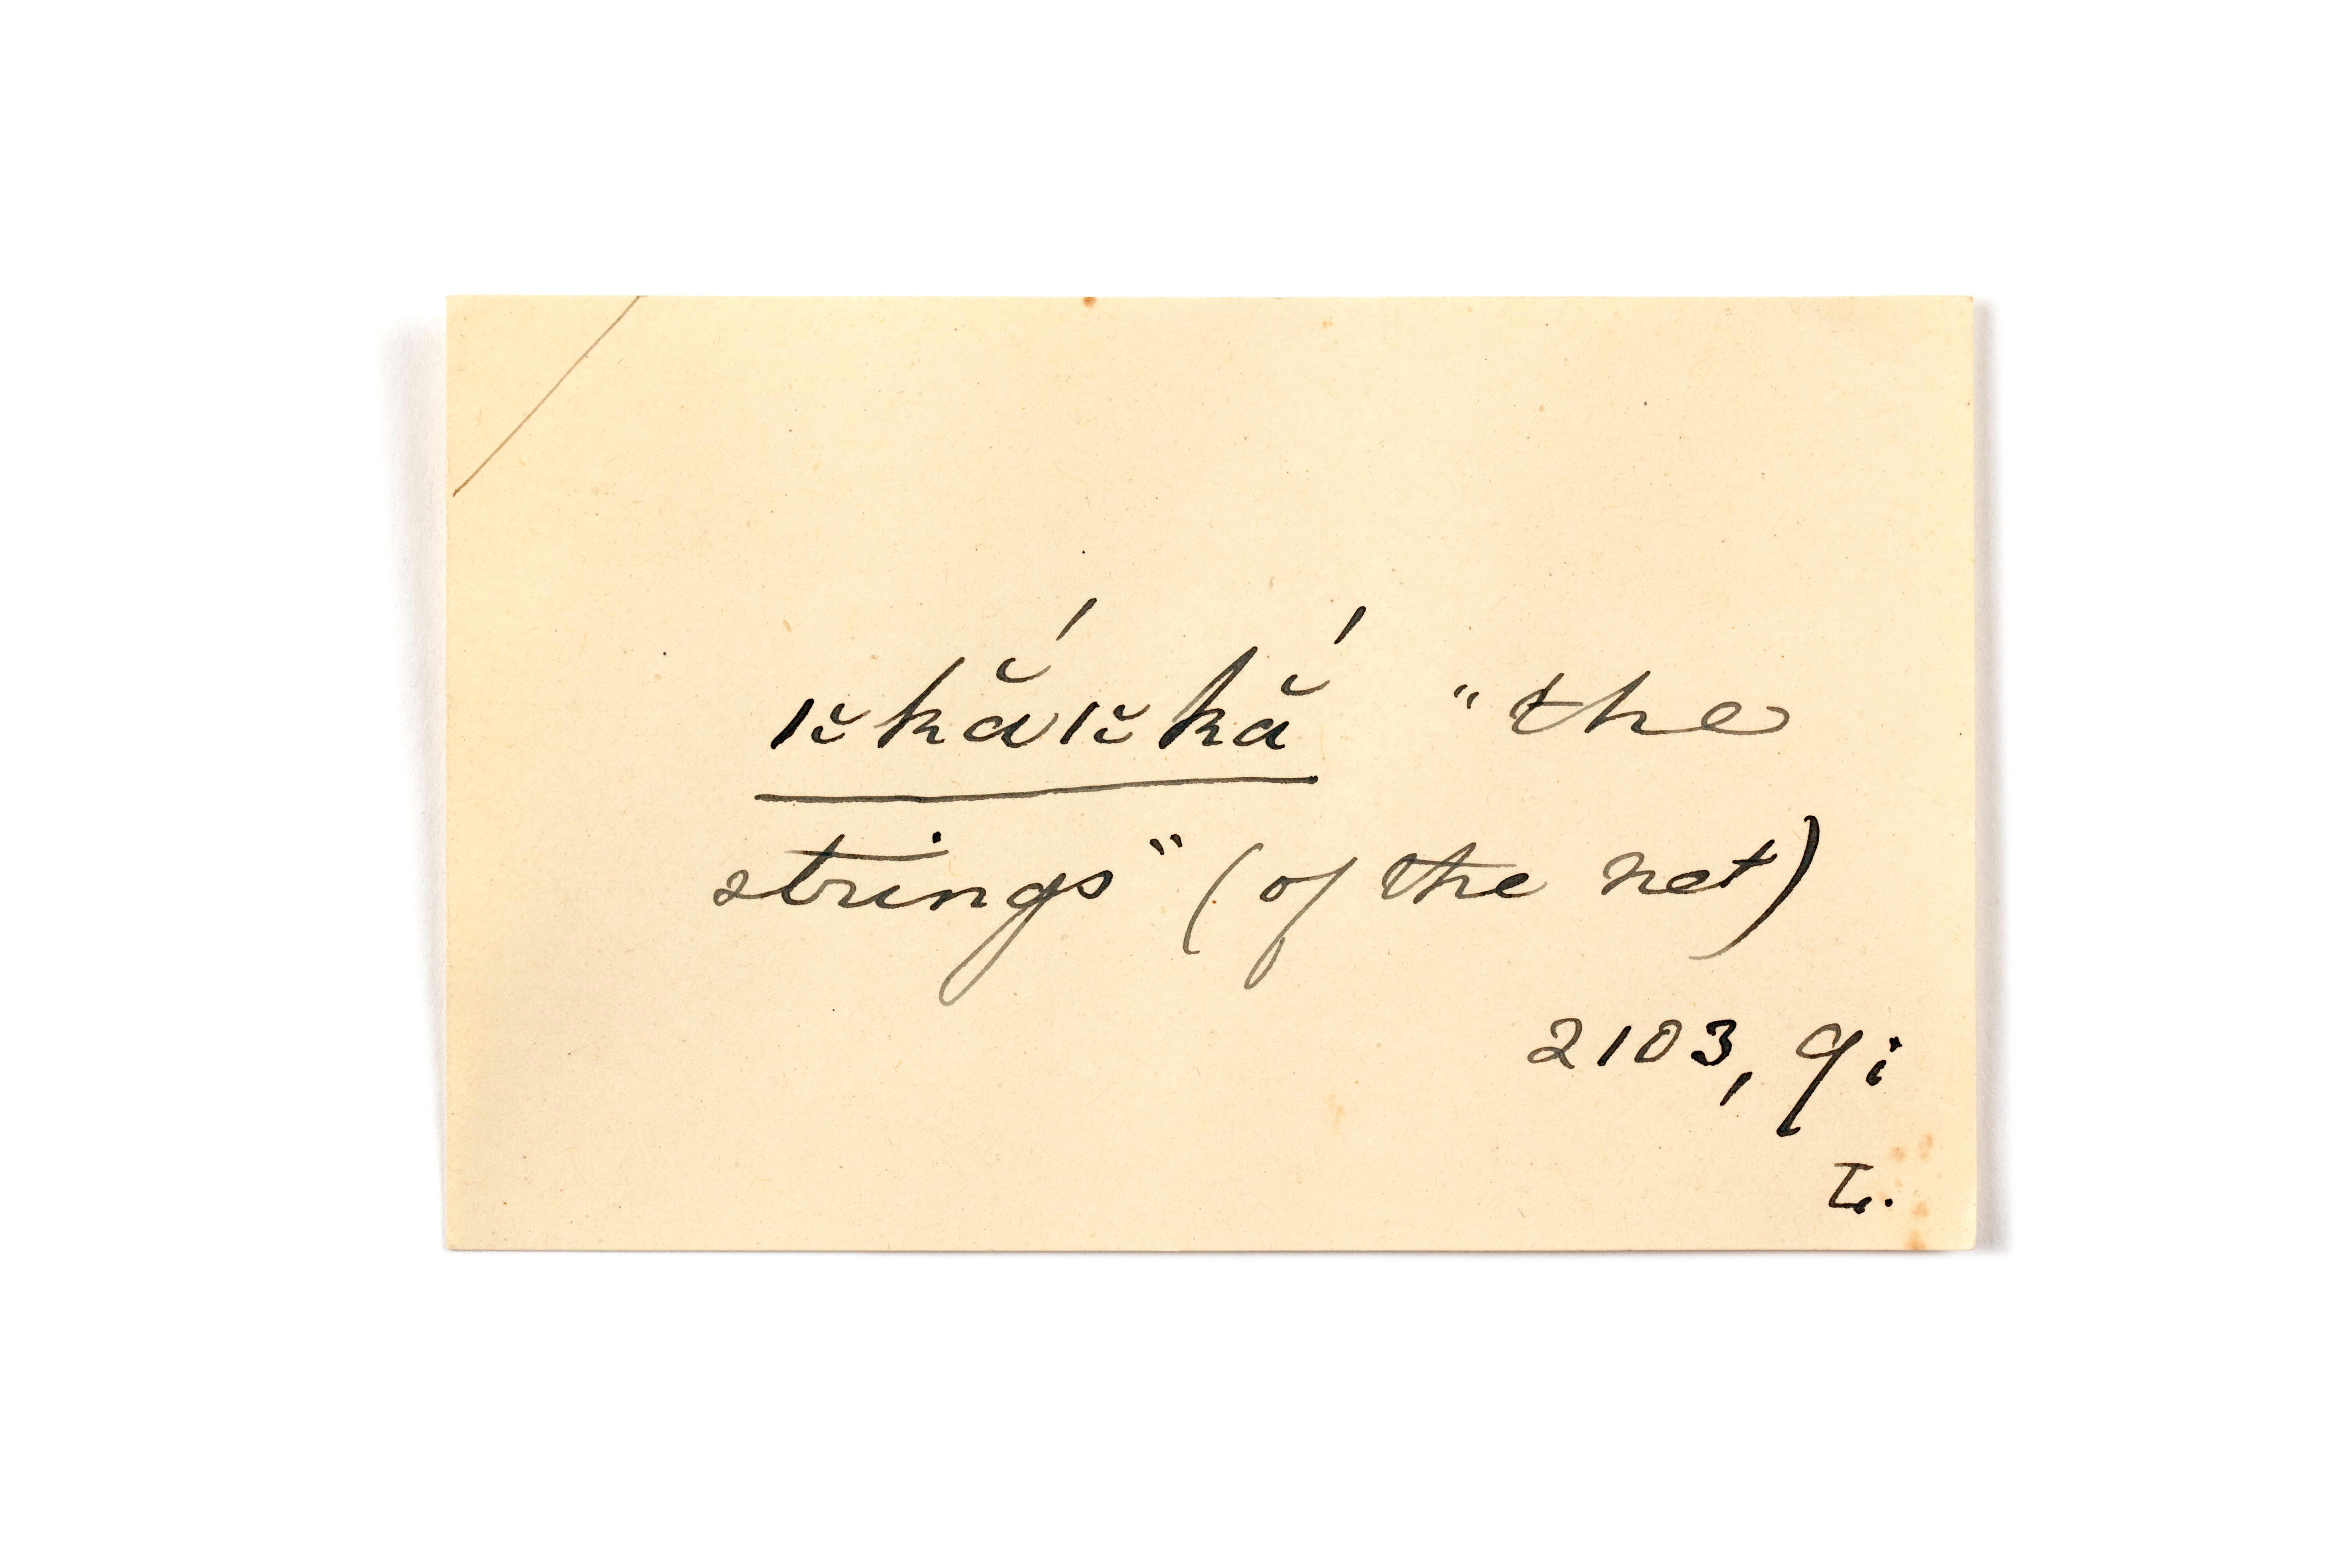 ıčkắıčkắ "the
strings" (of the net)
2103, 9i
L.